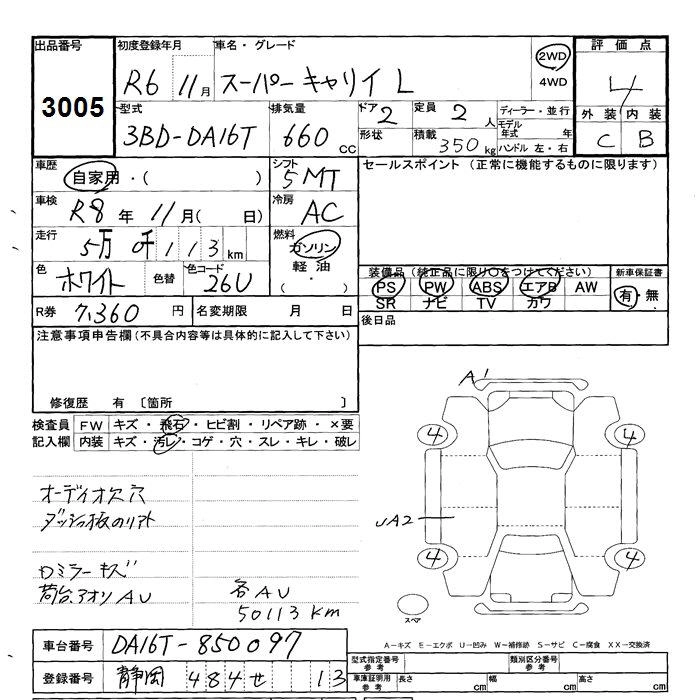 出品番号 初度登録年月 車名・グレード 評価点
3005 R6 11月 スーパーキャリイ L 2WD 4WD 4
型式 排気量 ドア 定員 ディーラー・並行 外装 内装
3BD-DA16T 660cc 2 2人 モデル年式 年 C B
形状 積載 350kg ハンドル 左・右
車歴 自家用・( ) シフト 5MT セールスポイント (正常に機能するものに限ります)
車検 R8年 11月( 日) 冷房 AC
走行 5万0千113km 燃料 ガソリン 軽油 ( ・ )
色 ホワイト 色替 色コード 26U 装備品(純正品に限り○をつけてください) 新車保証書
PS PW ABS エアB AW 有・無
SR ナビ TV カワ
R券 7,360円 名変期限 月 日 後日品
注意事項申告欄(不具合内容等は具体的に記入して下さい)
修復歴 有 〔箇所 〕
検査員 FW キズ・飛石・ヒビ割・リペア跡・×要
記入欄 内装 キズ・汚レ・コゲ・穴・スレ・キレ・破レ
A1
4 4
オーディオ欠穴
UA2
4 4
Dミラーキズ
荷台、アオリAU 各AU
50113km
スペア
A−キズ E−エクボ U−凹み W−補修跡 S−サビ C−腐食 XX−交換済
車台番号 DA16T-850097
型式指定番号 参考 類別区分番号 参考
登録番号 静岡 484 せ 13
車庫証明用 参考 長さ cm 幅 cm 高さ cm